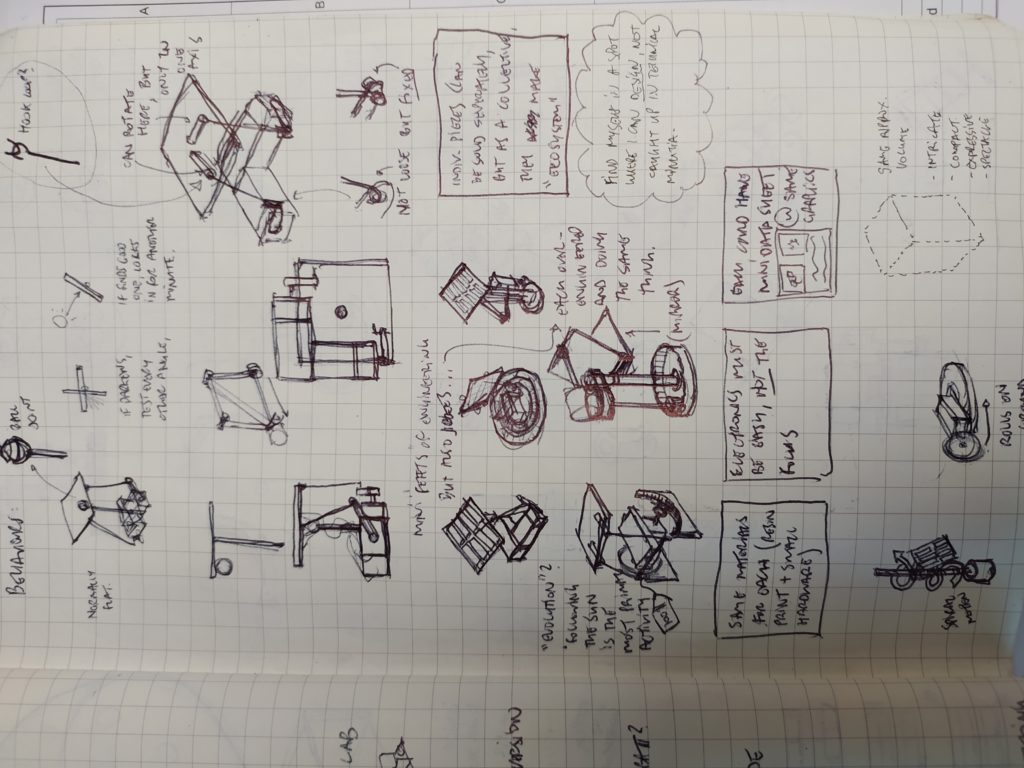 BEHAVIOURS:
BALL
JOINT
HOOK LOOP?
NORMALLY
FLAT.
IF DARKENS,
TEST EVERY
OTHER ANGLE,
IF FINDS GOOD
ONE, LOCKS
IN FOR ANOTHER
MINUTE.
CAN ROTATE
HERE, BUT
ONLY IN
ONE
AXIS
NOT LOOSE BUT FIXED
MINI FEETS OF ENGINEERING
BUT ALSO JOKES...
INDIV. PIECES CAN
BE SOLD SEPERATELY,
BUT AS A COLLECTIVE,
THEY MAKE
"ECOSYSTEM"
"EVOLUTION"?
"FOLLOWING
THE SUN
IS THE
MOST PRIMAL
ACTIVITY
EACH OVER-
ENGINEERED
AND DOING
THE SAME
THING.
(MIRRORS)
FIND MYSELF IN A SPOT
WHERE I CAN DESIGN, NOT
CAUGHT UP IN TECHNICAL
MINUTIA
SAME MATERIALS
FOR EACH (RESIN
PRINT + SMALL
HARDWARE)
ELECTRONICS MUST
BE EATSY, NOT THE
FOCUS
EACH COULD HAVE
MINI DATA SHEET
W SAME
GRAPHICS
SAME APPROX.
VOLUME
- INTRICATE
- COMPACT
- EXPRESSIVE
- SPECTACLE
SPIRAL
MOTION
ROLLS ON
LAB